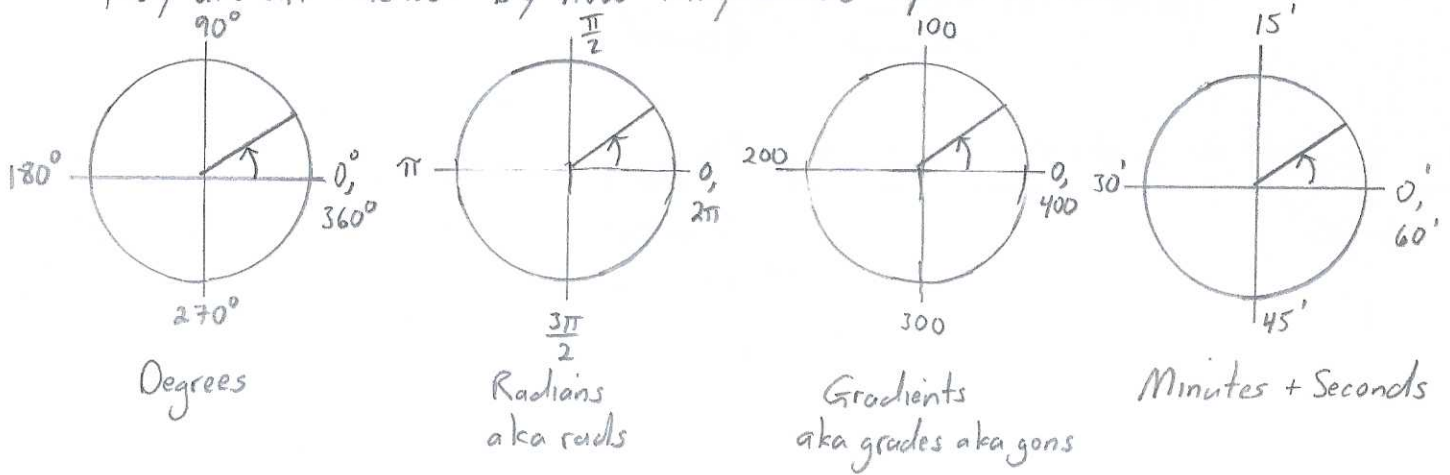 90°
180°
0°,
360°
270°
Degrees
π/2
π
0,
2π
3π/2
Radians
aka rads
100
200
0,
400
300
Gradients
aka grades aka gons
15'
30'
0',
60'
45'
Minutes + Seconds